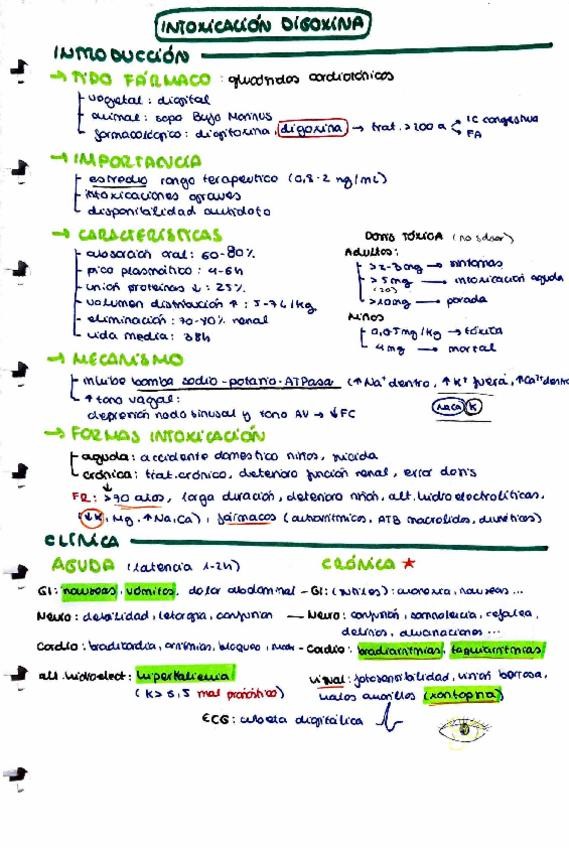 INTOXICACIÓN DIGOXINA
INTRODUCCIÓN
→ TIPO FÁRMACO: glucósidos cardiotónicos
vegetal: digital
animal: sapo Bufo Marinus
farmacológico: digitoxina, digoxina → trat. > 200 a
IC congestiva
FA
→ IMPORTANCIA
estrecho rango terapéutico (0,8-2 ng/mL)
intoxicaciones graves
disponibilidad antídoto
→ CARACTERÍSTICAS
absorción oral: 60-80%
pico plasmático: 4-6h
unión proteínas ↓: 25%
volumen distribución ↑: 5-7L/kg
eliminación: 70-90% renal
vida media: 38h
DOSIS TÓXICA (no saber)
Adultos:
>2-3mg → síntomas
>5mg → intoxicación aguda
>10mg → parada
Niños
0,05mg/kg → tóxica
4mg → mortal
→ MECANISMO
inhibe bomba sodio-potasio-ATPasa (↑Na⁺ dentro, ↑K⁺ fuera, ↑Ca²⁺ dentro
↑ tono vagal:
depresión nodo sinusal y tono AV → ↓FC
NaCa K
→ FORMAS INTOXICACIÓN
aguda: accidente doméstico niños, suicida
crónica: trat. crónico, deterioro función renal, error dosis
FR: >70 años, larga duración, deterioro riñón, alt. hidroelectrolíticas,
(↓K, Mg, ↑Na, Ca), fármacos (antiarrítmicos, ATB macrólidos, diuréticos)
CLÍNICA
AGUDA (latencia 1-2h)
CRÓNICA ★
GI: nauseas, vómitos, dolor abdominal - GI: (sutiles): anorexia, nauseas...
Neuro: debilidad, letargia, confusión — Neuro: confusión, somnolencia, cefalea,
delirios, alucinaciones...
Cardio: bradicardia, arritmias, bloqueo, - Cardio: bradiarritmias, taquiarritmias
alt. hidroelect: hiperkaliemia
(K > 5,5 mal pronóstico)
visual: fotosensibilidad, visión borrosa,
halos amarillos (xantopsia)
ECG: cubeta digitálica